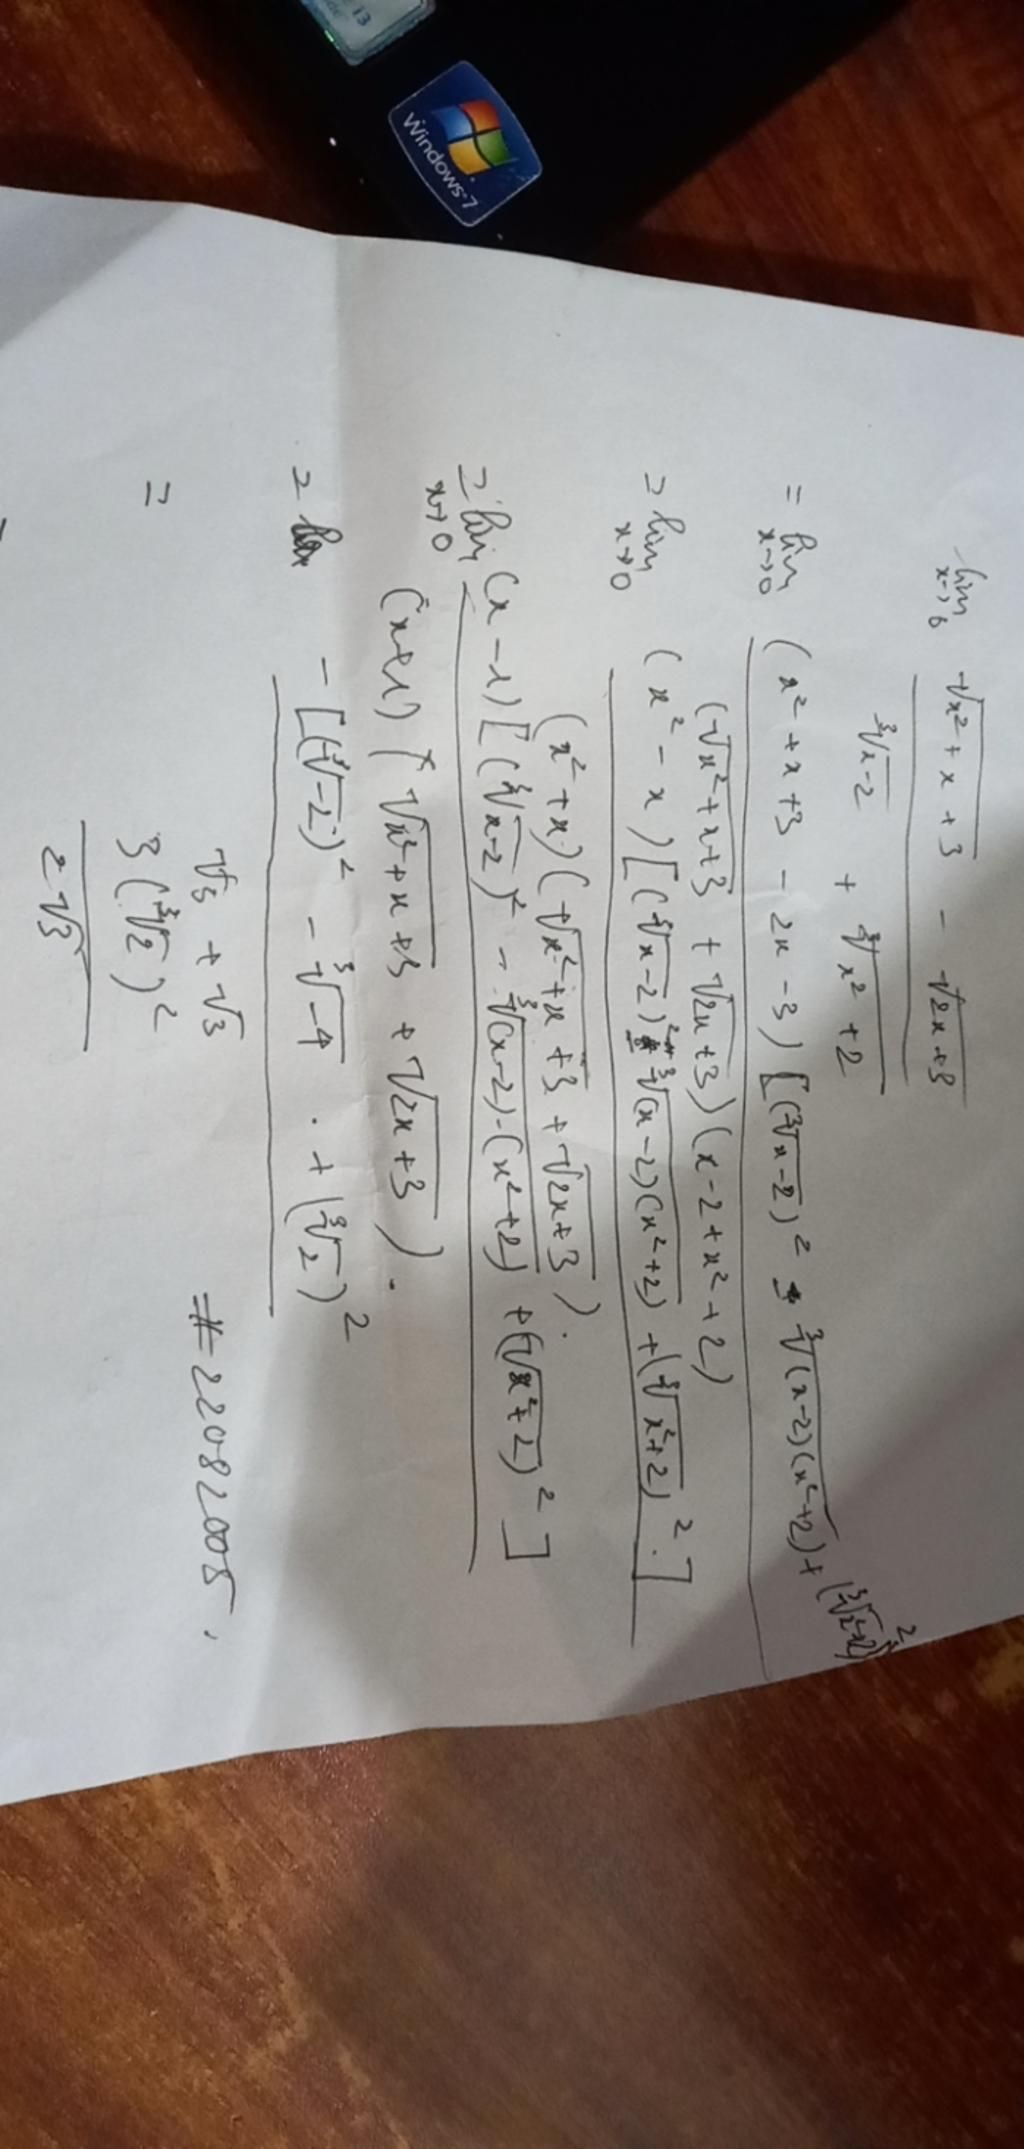 Windows 7
lim x→0 (√(x²+x+3) - √(2x+3)) / (∛(x-2) + ∛(x²+2))
= lim x→0 (x²+x+3-2x-3)[(∛(x-2))² - ∛((x-2)(x²+2)) + (∛(x²+2))²] / (√(x²+x+3) + √(2x+3))(x-2+x²+2)
= lim x→0 (x²-x)[(∛(x-2))² - ∛((x-2)(x²+2)) + (∛(x²+2))².] / (x²+x)(√(x²+x+3) + √(2x+3)).
= lim x→0 (x-1)[(∛(x-2))² - ∛((x-2).(x²+2)) + (∛(x²+2))²] / (x+1)(√(x²+x+3) + √(2x+3)).
= -[(∛-2)² - ∛-4 . + (∛2)² / √3 + √3
= 3(∛2)² / 2√3
# 22082005.